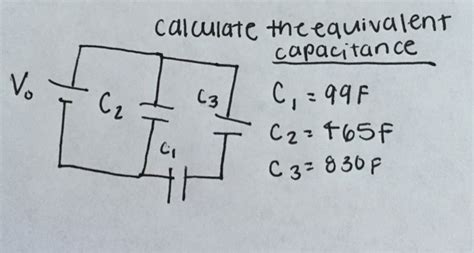 calculate the equivalent
capacitance
V₀
C₂
C₃
C₁
C₁ = 99F
C₂ = 465F
C₃ = 830F